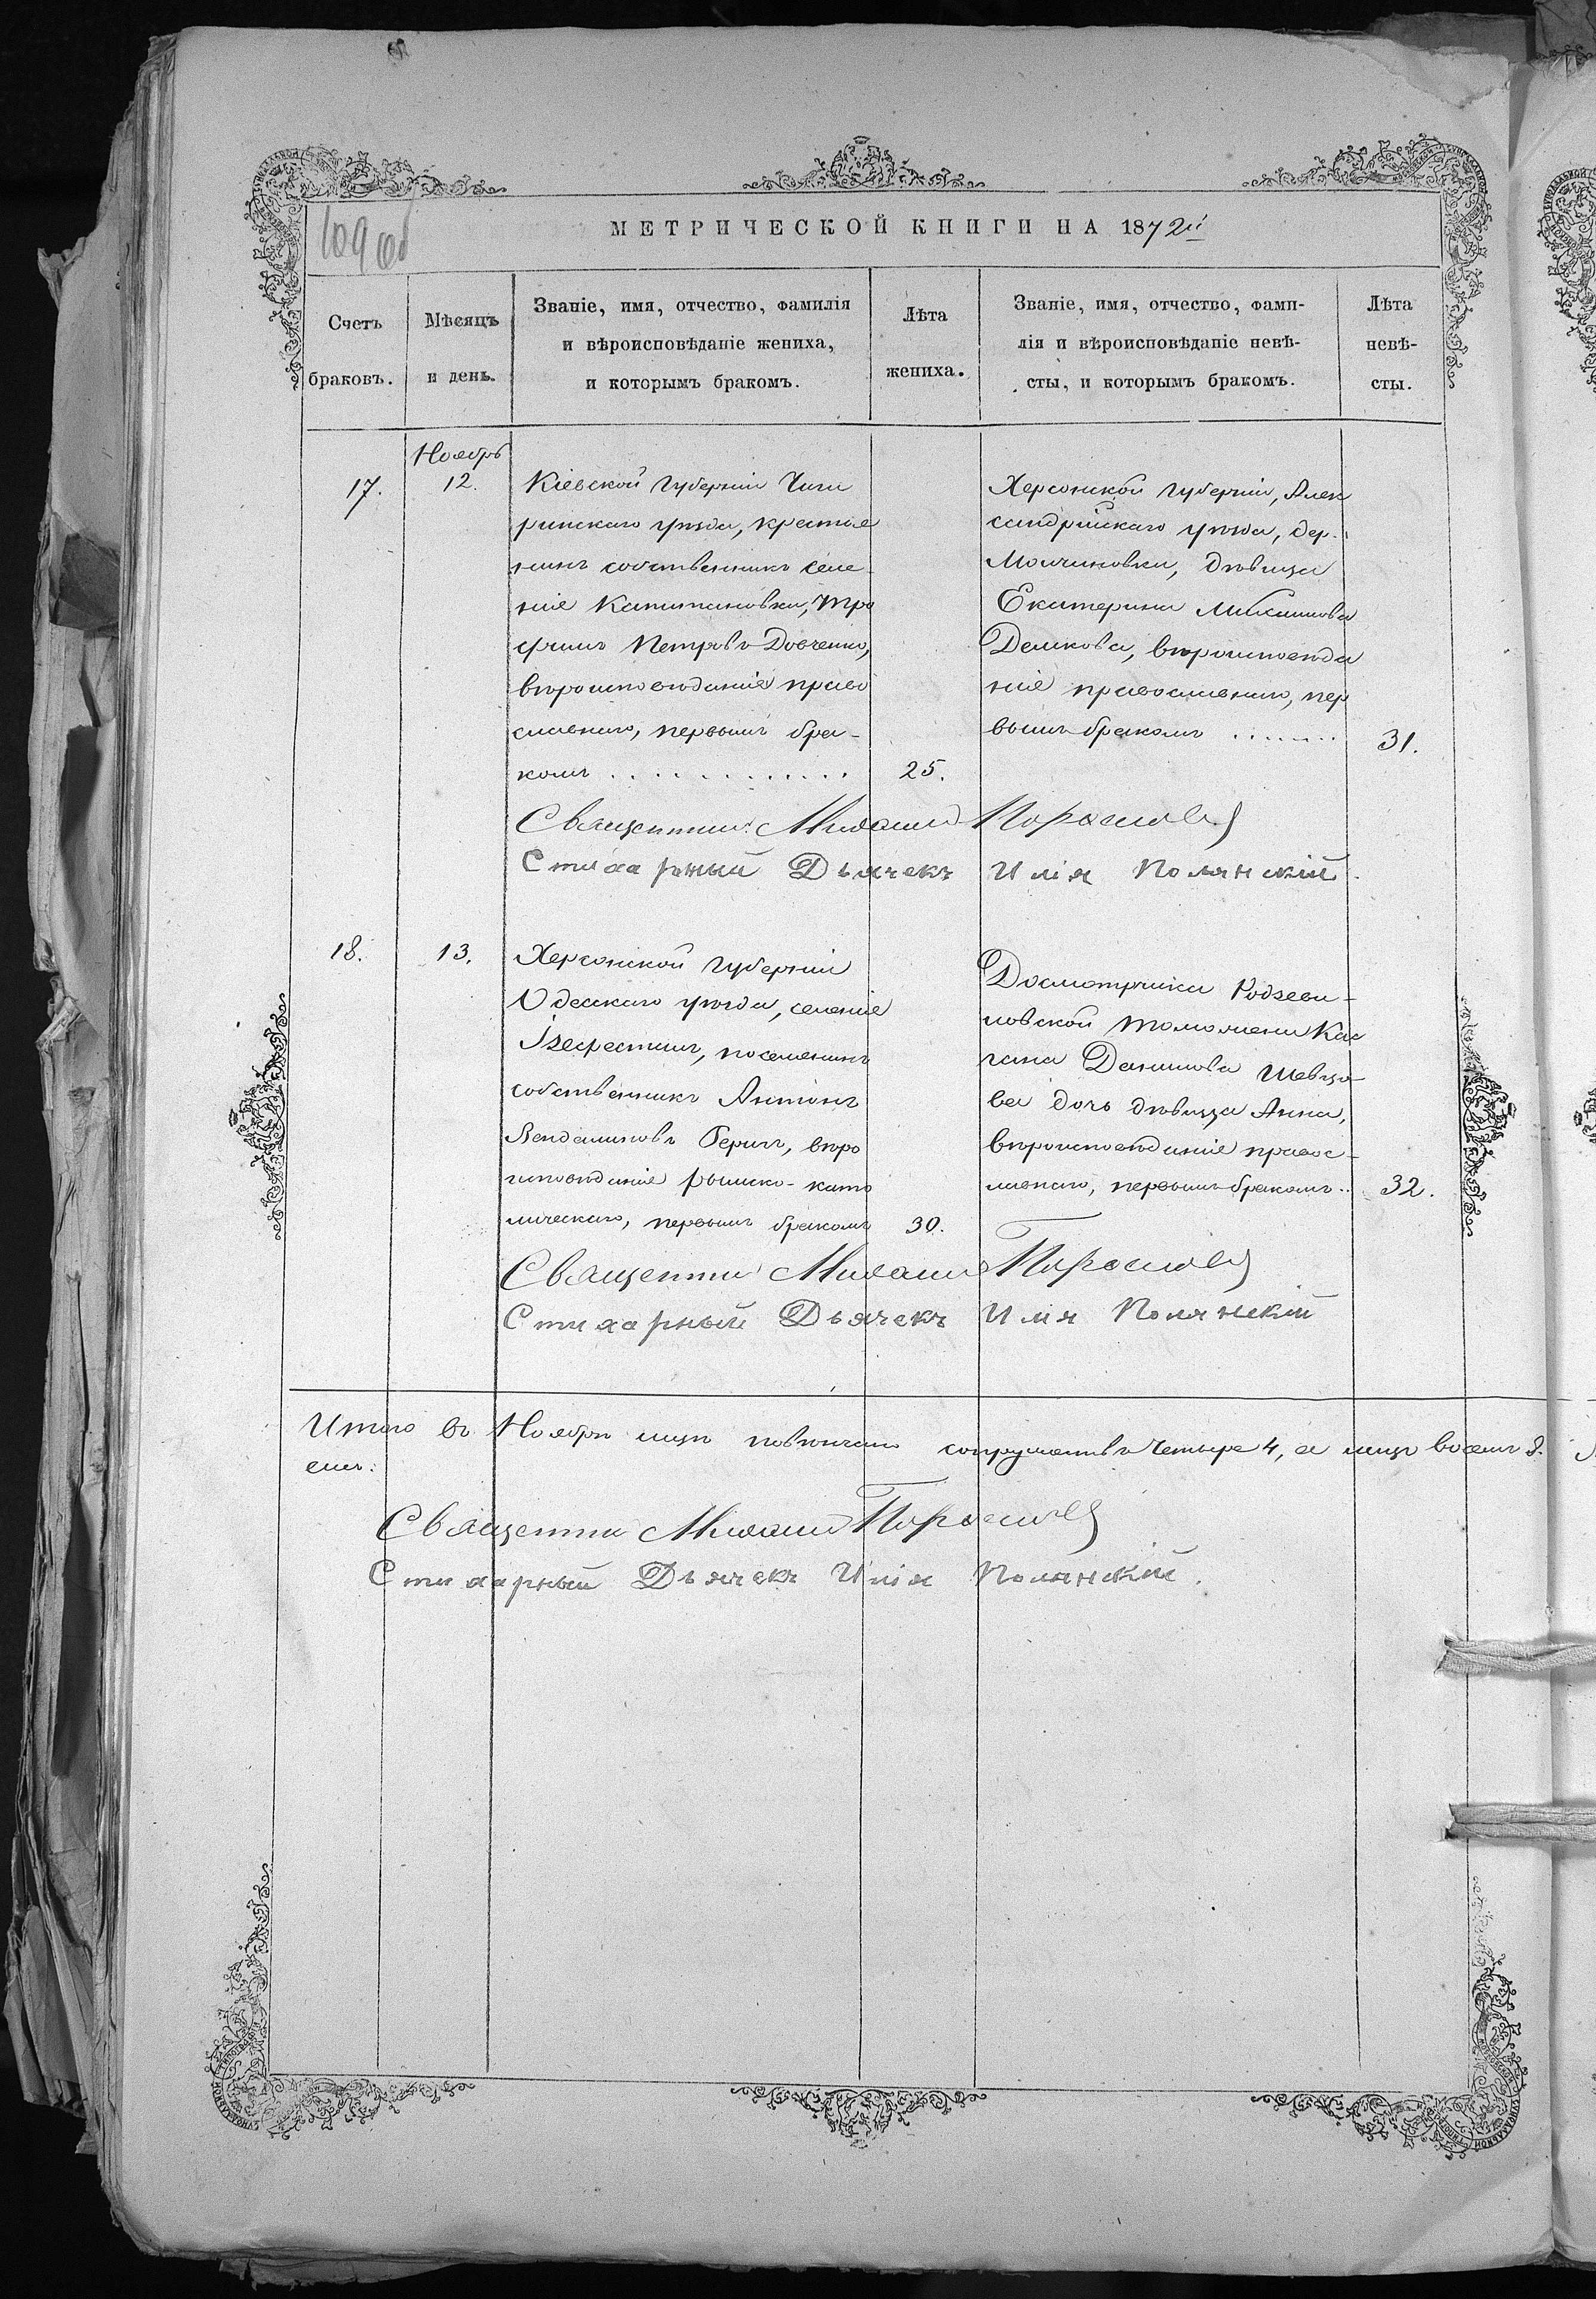 109 об
МЕТРИЧЕСКОЙ КНИГИ НА 1872й
Счетъ браковъ.
Мѣсяцъ и день.
Званіе, имя, отчество, фамилія
и вѣроисповѣданіе жениха,
и которымъ бракомъ.
Лѣта жениха.
Званіе, имя, отчество, фами-
лія и вѣроисповѣданіе невѣ-
сты, и которымъ бракомъ.
Лѣта невѣ-
сты.
Ноябрь
17.
12.
Кіевской губерніи Чиги
ринскаго уѣзда, крестья
нинъ собственникъ селе
ніе Капитановки, Тро
фимъ Петровъ Довченко,
вѣроисповѣданіе право
славнаго, первымъ бра-
комъ . . . . . . . . . . . .
25.
Херсонской губерніи, Алек
сандрійскаго уѣзда, дер.
дѣвица
Екатерина
Демкова, вѣроисповѣда
ніе православнаго, пер
вымъ бракомъ . . . . . . .
31.
Священникъ Михаилъ
Стихарный Дьячекъ Илія Полянскій.
18.
13.
Херсонской губерніи
Одесскаго уѣзда, селеніе
поселенинъ
собственникъ Антонъ
вѣро
исповѣданіе рымско-като
лическаго, первымъ бракомъ
30.
Досмотрщика Радзеви-
ловской таможни Кас
Данилова Шевцо-
ва дочь дѣвица Анна,
вѣроисповѣданіе правос-
лавнаго, первымъ бракомъ..
32.
Священникъ Михаилъ
Стихарный Дьячекъ Илія Полянскій
Итого въ Ноябрѣ мѣсяцѣ повѣнчано супружествъ Четыре 4, а лицъ восемь 8.
Священникъ Михаилъ
Стихарный Дьячекъ Илія Полянскій.